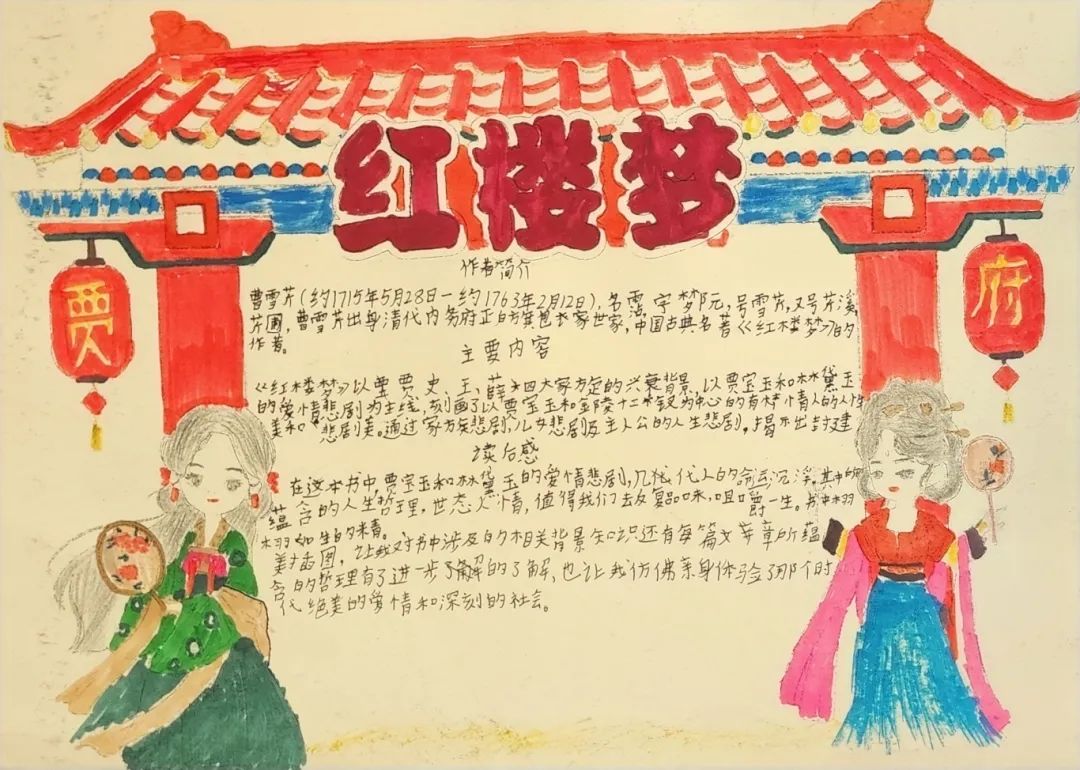 红楼梦
贾
府
作者简介
曹雪芹(约1715年5月28日一约1763年2月12日),名霑,字梦阮,号雪芹,又号芹溪,
芹圃,曹雪芹出身清代内务府正白旗包衣世家,中国古典名著《红楼梦》的
作者。
主要内容
《红楼梦》以贾史、王、薛四大家族的兴衰背景,以贾宝玉和林黛玉
的爱情悲剧为主线,刻画了以贾宝玉和金陵十二钗为中心的有情人的人性
美和悲剧美。通过家族悲剧,儿女悲剧及主人公的人生悲剧,揭示出封建
读后感
在这本书中,贾宝玉和林黛玉的爱情悲剧,几代人的命运沉浮,其中的
蕴含的人生哲理,世态人情,值得我们去反复回味,咀嚼一生。书中栩
栩如生的
美插图,让我对书中涉及的相关背景知识还有每篇文章所蕴
含的哲理有了进一步了解的了解,也让我仿佛亲身体验了那个时
代绝美的爱情和深刻的社会。